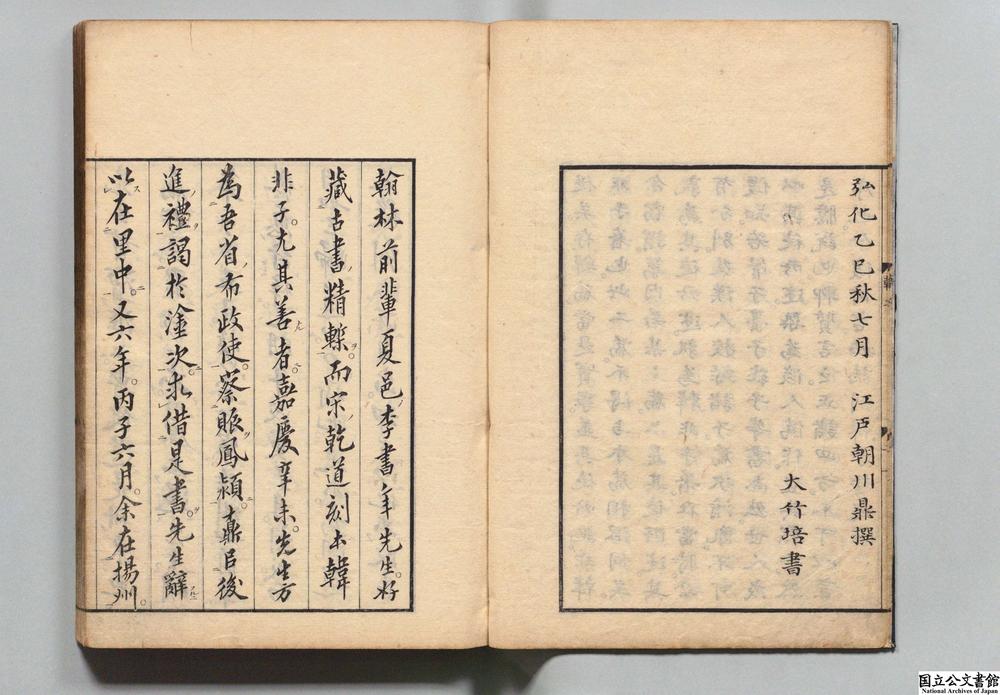 弘化乙巳秋七月 江戸朝川鼎撰
大竹培書
翰林前輩夏邑李書年先生好
藏古書精槧而宋乾道刻本韓
非子尤其善者嘉慶辛未先生方
為吾省布政使察賑鳳潁鼒以後
進禮謁於塗次求借是書先生辭
以在里中又六年丙子六月余在揚州
国立公文書館
National Archives of Japan